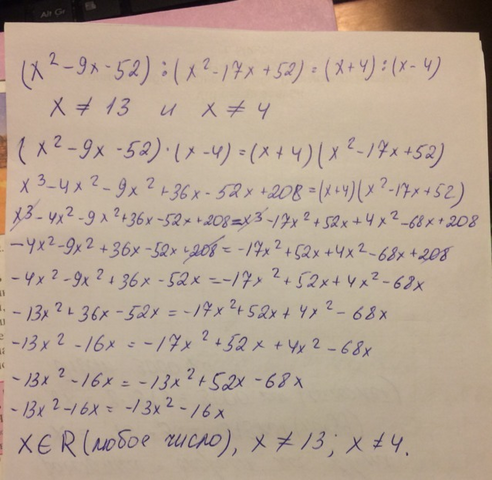 (x²-9x-52):(x²-17x+52)=(x+4):(x-4)
x≠13 и x≠4
(x²-9x-52)·(x-4)=(x+4)(x²-17x+52)
x³-4x²-9x²+36x-52x+208=(x+4)(x²-17x+52)
x³-4x²-9x²+36x-52x+208=x³-17x²+52x+4x²-68x+208
-4x²-9x²+36x-52x+208=-17x²+52x+4x²-68x+208
-4x²-9x²+36x-52x=-17x²+52x+4x²-68x
-13x²+36x-52x=-17x²+52x+4x²-68x
-13x²-16x=-17x²+52x+4x²-68x
-13x²-16x=-13x²+52x-68x
-13x²-16x=-13x²-16x
x∈R(любое число), x≠13; x≠4.